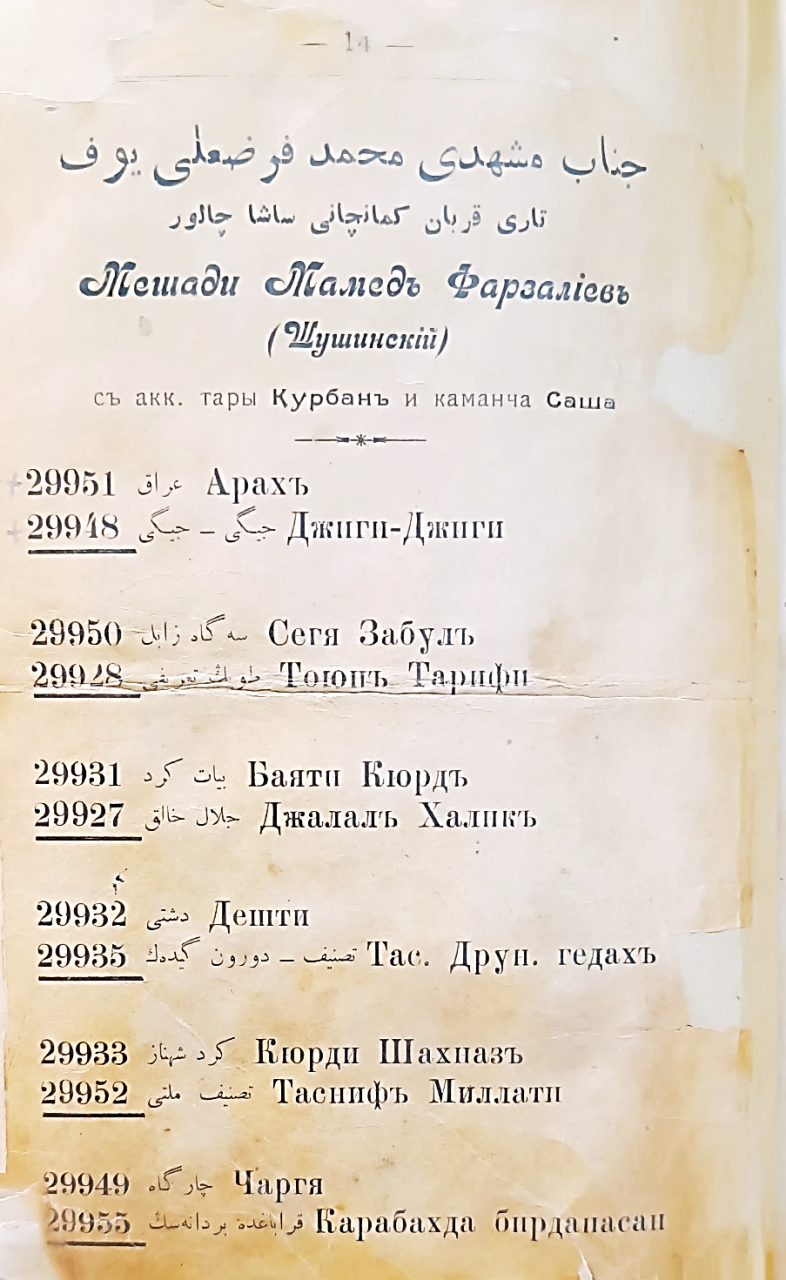 — 14 —
جناب مشهدی محمد فرضعلی یوف
تاری قربان کمانچانی ساشا چالور
Мешади Мамедъ Фарзаліевъ
(Шушинскій)
съ акк. тары Курбанъ и каманча Саша
29951 عراق Арахъ
29948 جیگی – جیگی Джиги-Джиги
29950 سه گاه زابل Сегя Забулъ
29928 طویڭ تعریفی Тоюнъ Тарифи
29931 بیات کرد Баяти Кюрдъ
29927 جلال خالق Джалалъ Халикъ
29932 دشتی Дешти
29935 تصنیف – دورون گیدەك Тас. Друн. гедахъ
29933 کرد شهناز Кюрди Шахназъ
29952 تصنیف ملتی Таснифъ Миллати
29949 چارگاه Чаргя
29955 قراباغدە بردانەسڭ Карабахда бирданасан